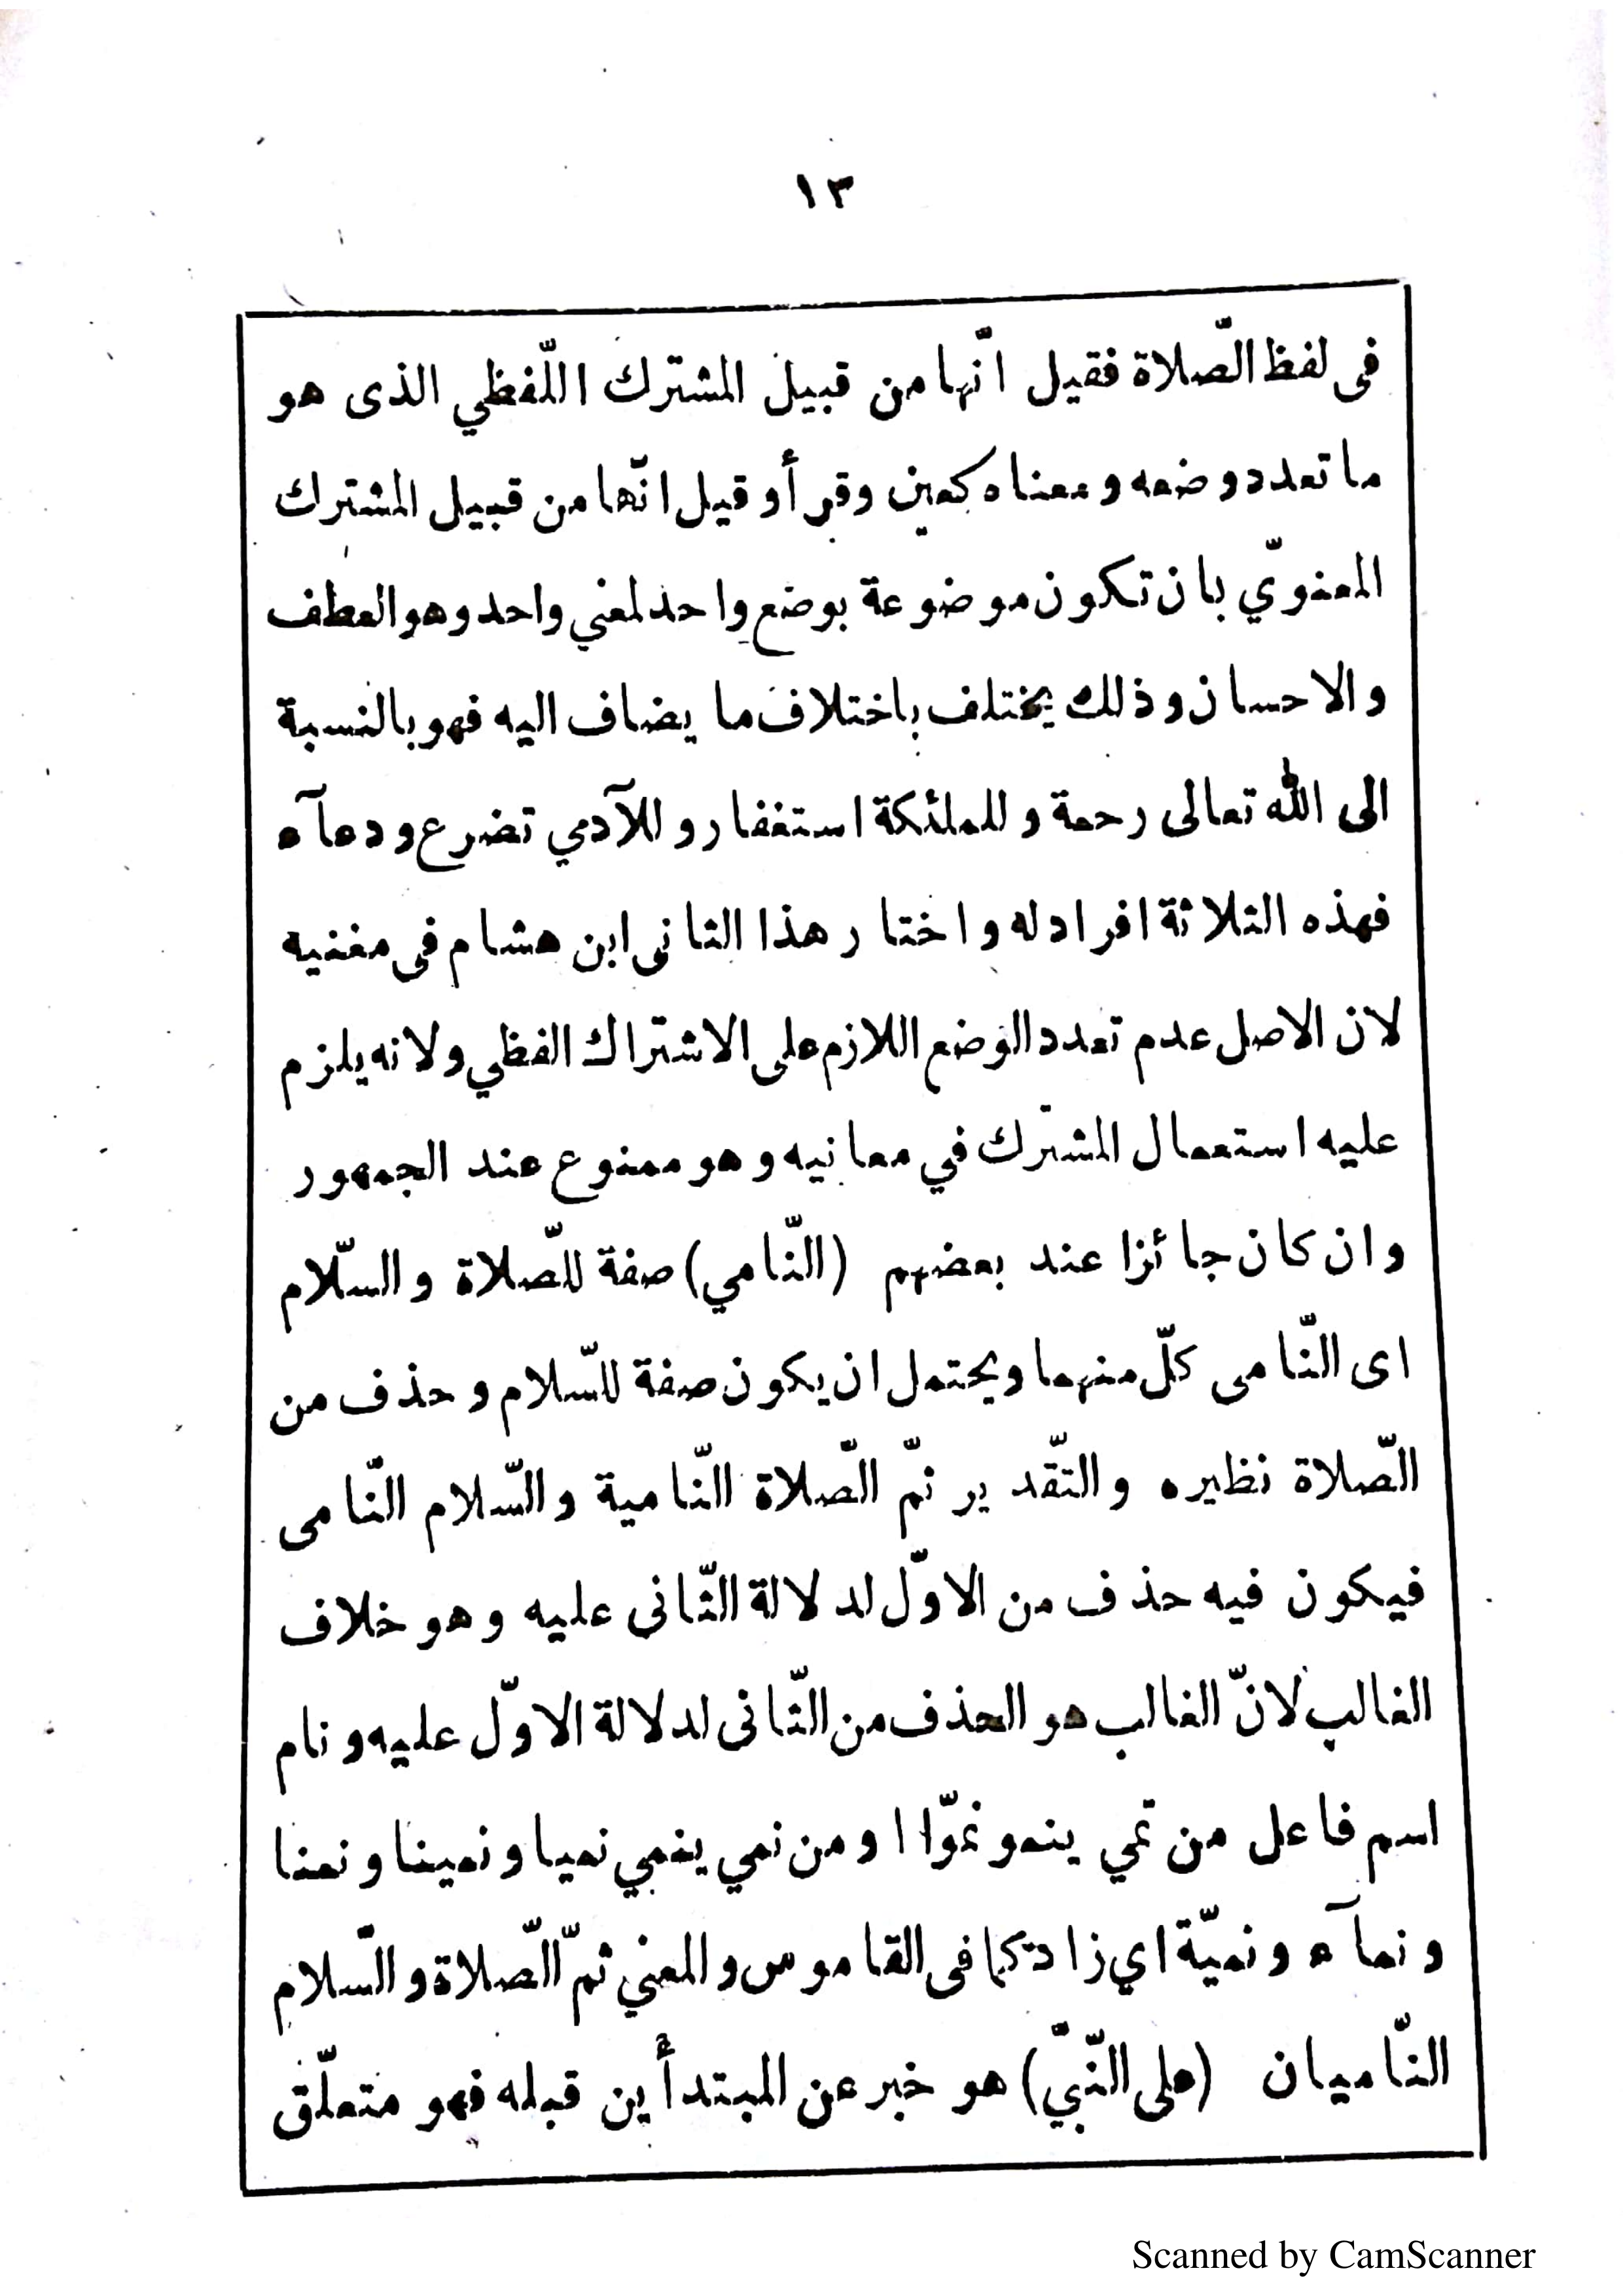 ١٣
فى لفظ الصّلاة فقيل انّها من قبيل المشترك اللّفظي الذى هو
ما تعدد وضعه ومعناه كعين وقرأ و قيل انّها من قبيل المشترك
المعنويّ بان تكون موضوعة بوضع واحد لمعني واحد وهو العطف
والاحسان وذلك يختلف باختلاف ما يضاف اليه فهو بالنسبة
الى الله تعالى رحمة وللملئكة استغفار وللآدمي تضرع ودعآء
فهذه الثلاثة افراد له واختار هذا الثانى ابن هشام فى مغنيه
لان الاصل عدم تعدد الوضع اللازم على الاشتراك الفظي ولانه يلزم
عليه استعمال المشترك في معانيه وهو ممنوع عند الجمهور
وان كان جائزا عند بعضهم (النّامي) صفة للصّلاة والسّلام
اى النّامى كلّ منهما ويحتمل ان يكون صفة للسّلام وحذف من
الصّلاة نظيره والتقّدير ثمّ الصّلاة النّامية والسّلام النّامى
فيكون فيه حذف من الاوّل لدلالة الثّانى عليه وهو خلاف
الغالب لانّ الغالب هو الحذف من الثّانى لدلالة الاوّل عليه ونام
اسم فاعل من نمي ينمو نموّا ا ومن نمي ينمي نميا ونمينا ونمنا
ونمآء ونميّة اي زاد كما فى القاموس والمعني ثمّ الصّلاة والسّلام
النّاميان (على النّبيّ) هو خبر عن المبتدأين قبله فهو متعلّق
Scanned by CamScanner